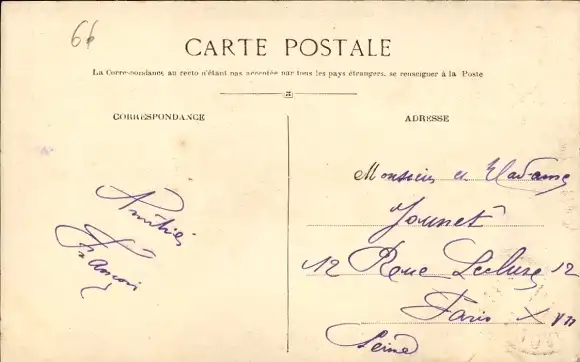 66
CARTE POSTALE
La Correspondance au recto n'étant pas acceptée par tous les pays étrangers, se renseigner à la Poste
CORRESPONDANCE
ADRESSE
Amitiés
François
Monsieur et Madame
Jounet
12 Rue Lecluse 12
Paris XVII
Seine